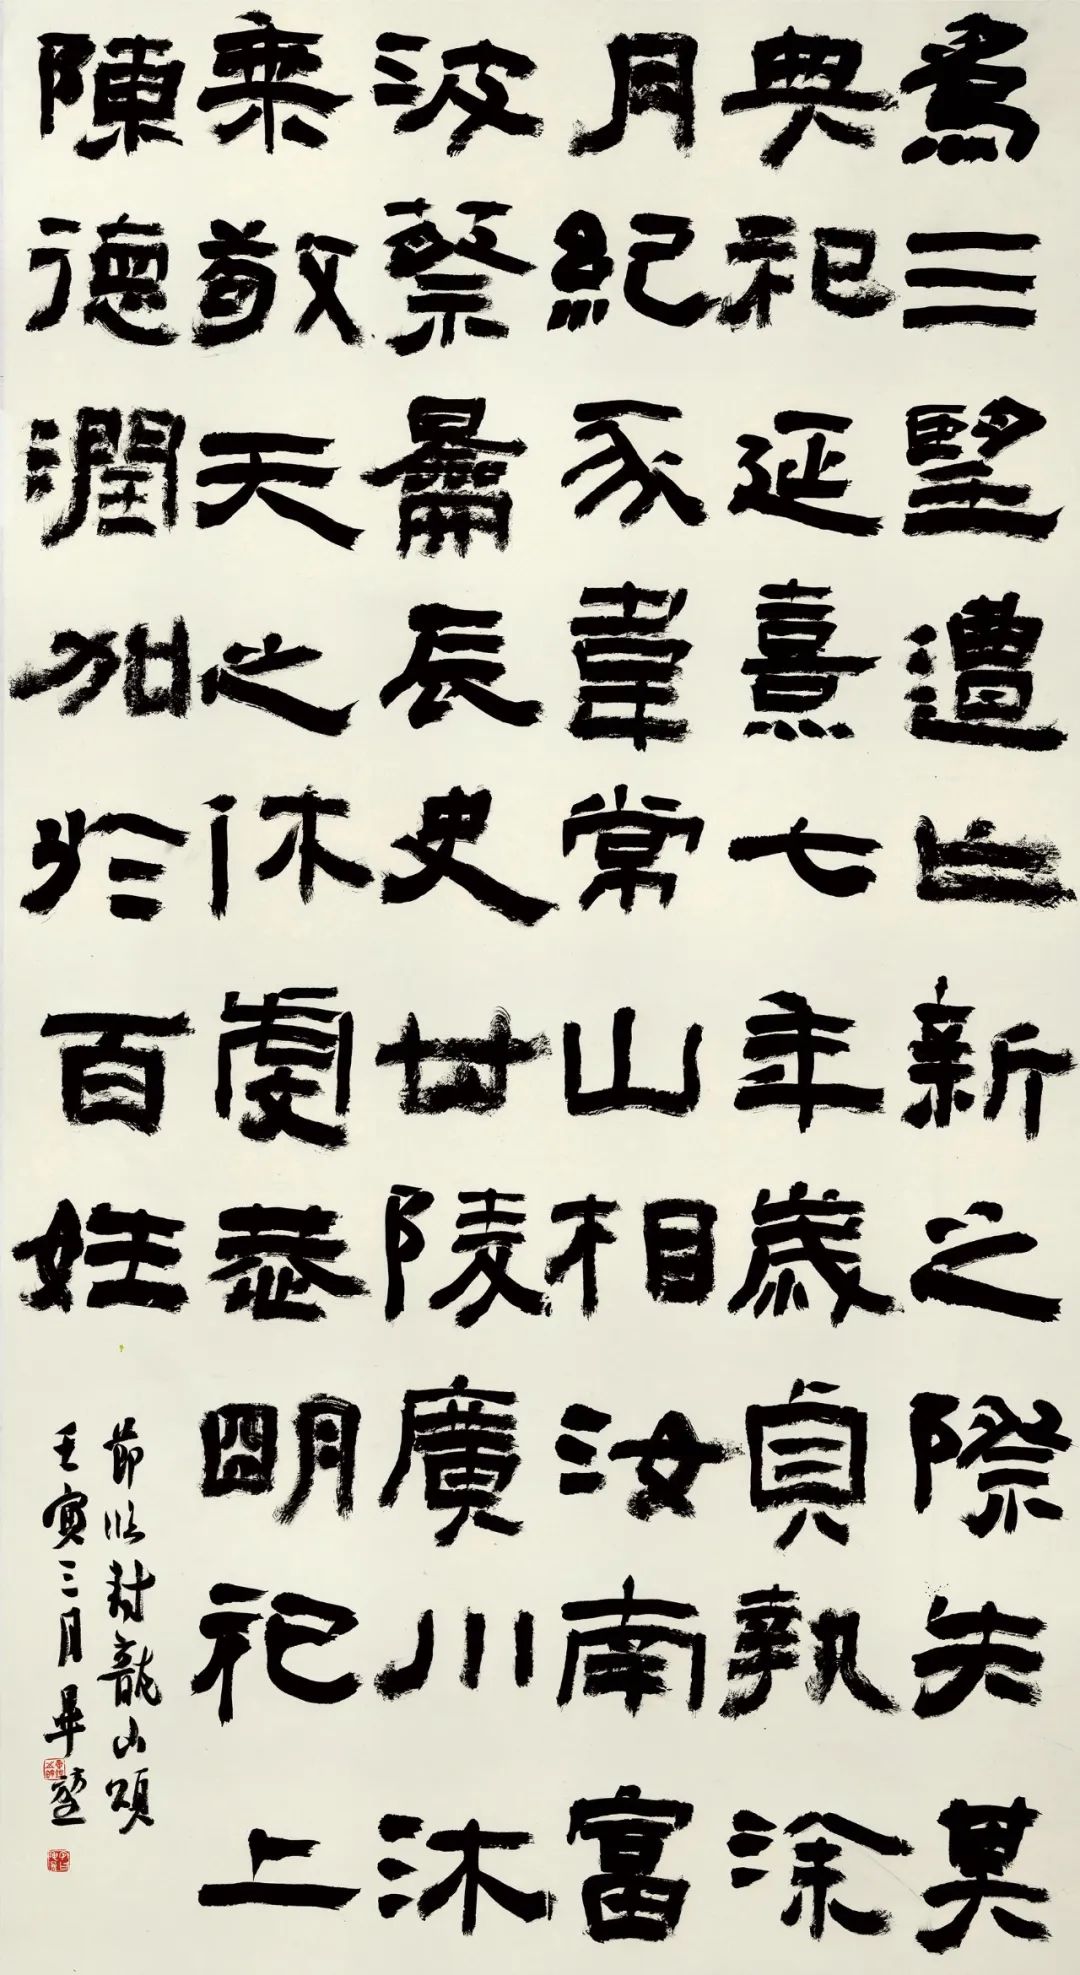 為三望遭亡新之際失其
典祀延熹七年歲貞執涂
月紀豕韋常山相汝南富
波蔡𣉙辰史甘陵廣川沐
乘敬天之休虔恭明祀上
陳德潤加於百姓
節臨封龍山頌
壬寅三月畢